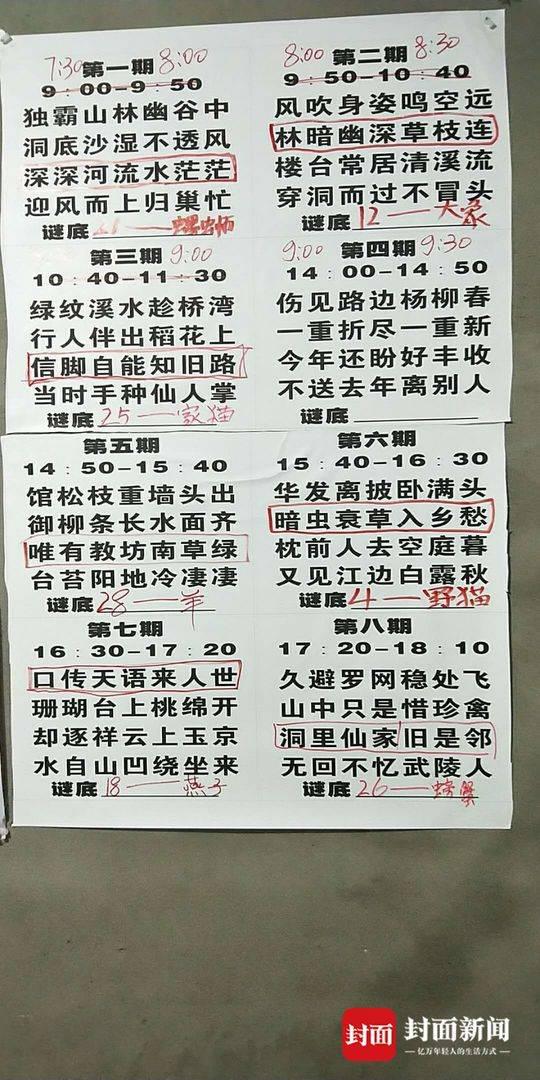 7:30 第一期 8:00
9：00-9：50
独霸山林幽谷中
洞底沙湿不透风
深深河流水茫茫
迎风而上归巢忙
谜底
8:00 第二期 8:30
9：50-10：40
风吹身姿鸣空远
林暗幽深草枝连
楼台常居清溪流
穿洞而过不冒头
谜底 12一大象
第三期 9:00
10：40-11：30
绿纹溪水趁桥湾
行人伴出稻花上
信脚自能知旧路
当时手种仙人掌
谜底 25一家猫
9:00 第四期 9:30
14：00-14：50
伤见路边杨柳春
一重折尽一重新
今年还盼好丰收
不送去年离别人
谜底
第五期
14：50-15：40
馆松枝重墙头出
御柳条长水面齐
唯有教坊南草绿
台苔阳地冷凄凄
谜底 28一羊
第六期
15：40-16：30
华发离披卧满头
暗虫衰草入乡愁
枕前人去空庭暮
又见江边白露秋
谜底 4一野猫
第七期
16：30-17：20
口传天语来人世
珊瑚台上桃绵开
却逐祥云上玉京
水自山凹绕坐来
谜底 18一燕子
第八期
17：20-18：10
久避罗网稳处飞
山中只是惜珍禽
洞里仙家旧是邻
无回不忆武陵人
谜底 26一螃蟹
封面 封面新闻
亿万年轻人的生活方式